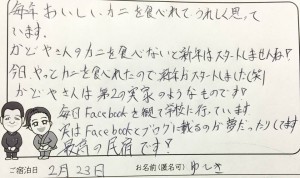 毎年おいしいカニを食べれてうれしく思って
います。
かどやさんのカニを食べないと新年はスタートしませんね!
今日、やっとカニを食べれたので新年がスタートしました(笑)
かどやさんは第2の実家のようなものです!
毎日Facebookを観て学校に行っています
実はFacebookとブログに載るのが夢だったりしてます
最高の民宿です!
ご宿泊日 2月23日 お名前(匿名可) ゆしき